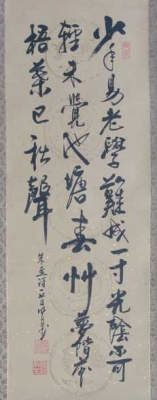 少年易老學難成一寸光陰不可
輕未覺池塘春艸夢階前
梧葉已秋聲